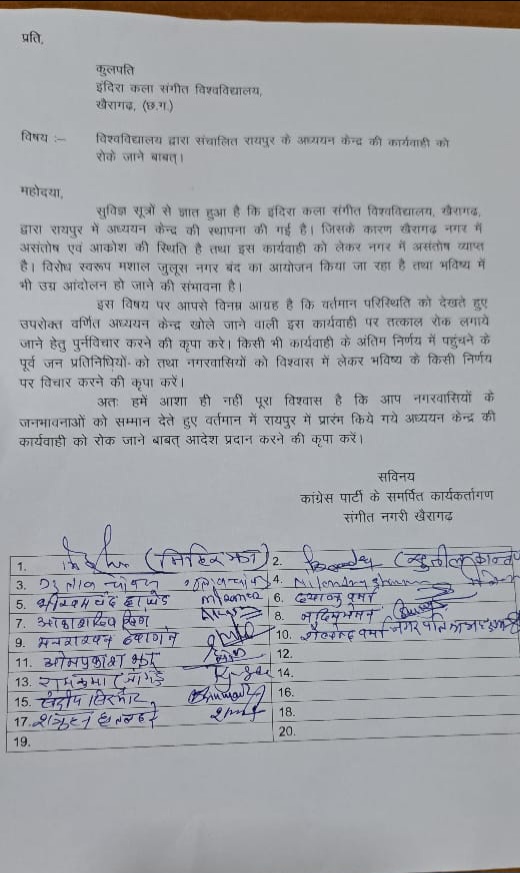 प्रति,
कुलपति
इंदिरा कला संगीत विश्वविद्यालय,
खैरागढ़, (छ.ग.)
विषय :– विश्वविद्यालय द्वारा संचालित रायपुर के अध्ययन केन्द्र की कार्यवाही को
रोके जाने बाबत्।
महोदया,
सुविज्ञ सूत्रों से ज्ञात हुआ है कि इंदिरा कला संगीत विश्वविद्यालय, खैरागढ़,
द्वारा रायपुर में अध्ययन केन्द्र की स्थापना की गई है। जिसके कारण खैरागढ़ नगर में
असंतोष एवं आकोश की स्थिति है तथा इस कार्यवाही को लेकर नगर में असंतोष व्याप्त
है। विरोध स्वरूप मशाल जुलूस नगर बंद का आयोजन किया जा रहा है तथा भविष्य में
भी उग्र आंदोलन हो जाने की संभावना है।
इस विषय पर आपसे विनम्र आग्रह है कि वर्तमान परिस्थिति को देखते हुए
उपरोक्त वर्णित अध्ययन केन्द्र खोले जाने वाली इस कार्यवाही पर तत्काल रोक लगाये
जाने हेतु पुर्नविचार करने की कृपा करे। किसी भी कार्यवाही के अंतिम निर्णय में पहुंचने के
पूर्व जन प्रतिनिधियों को तथा नगरवासियों को विश्वास में लेकर भविष्य के किसी निर्णय
पर विचार करने की कृपा करें।
अतः हमें आशा ही नहीं पूरा विश्वास है कि आप नगरवासियों के
जनभावनाओं को सम्मान देते हुए वर्तमान में रायपुर में प्रारंभ किये गये अध्ययन केन्द्र की
कार्यवाही को रोक जाने बाबत् आदेश प्रदान करने की कृपा करें।
सविनय
कांग्रेस पार्टी के समर्पित कार्यकर्तागण
संगीत नगरी खैरागढ़
1. (मिहिर झा) 2.
3. 4.
5. 6. दयालु वर्मा
7. 8.
9. मनराखन देवांगन 10.
11. ओमप्रकाश झा 12.
13. 14.
15. 16.
17. 18.
19. 20.